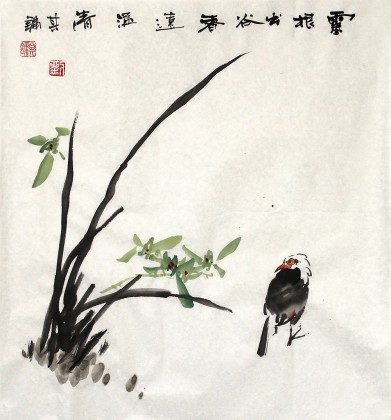 靈根出谷香遠溢清其